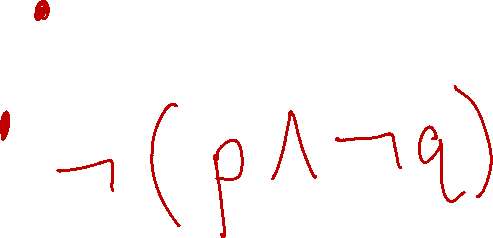 ¬(p∧¬q)